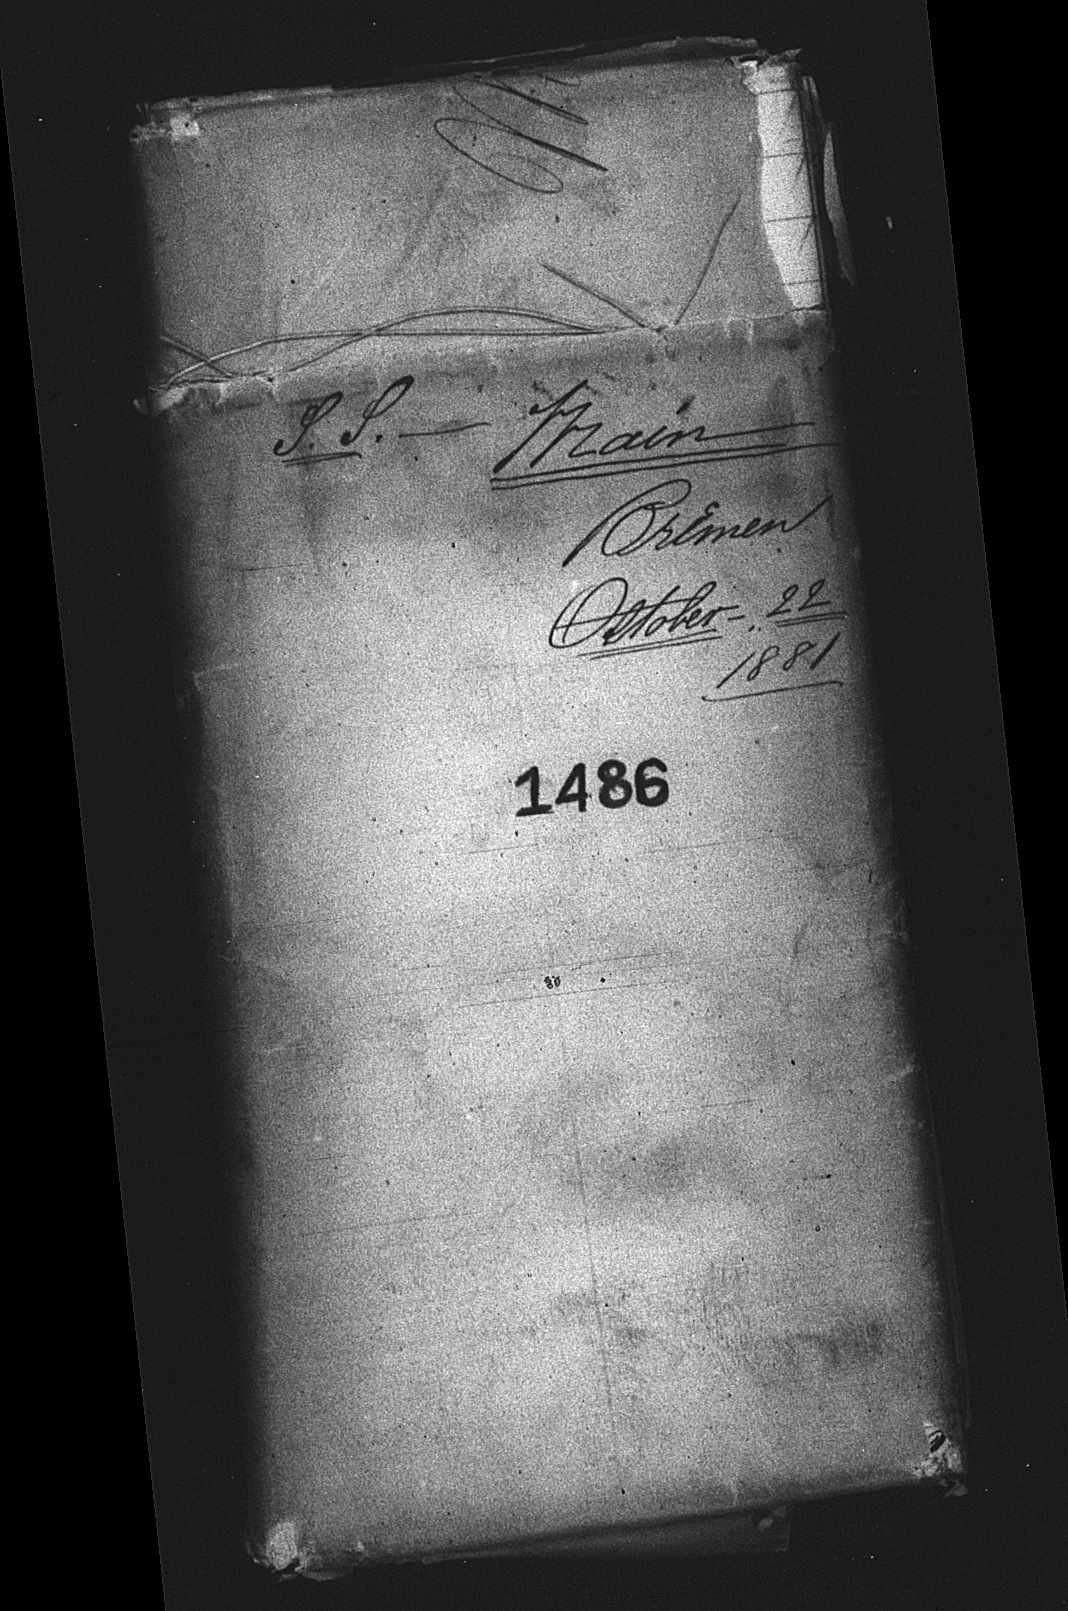 S. S. — Main
Bremen
October - 22
1881
1486